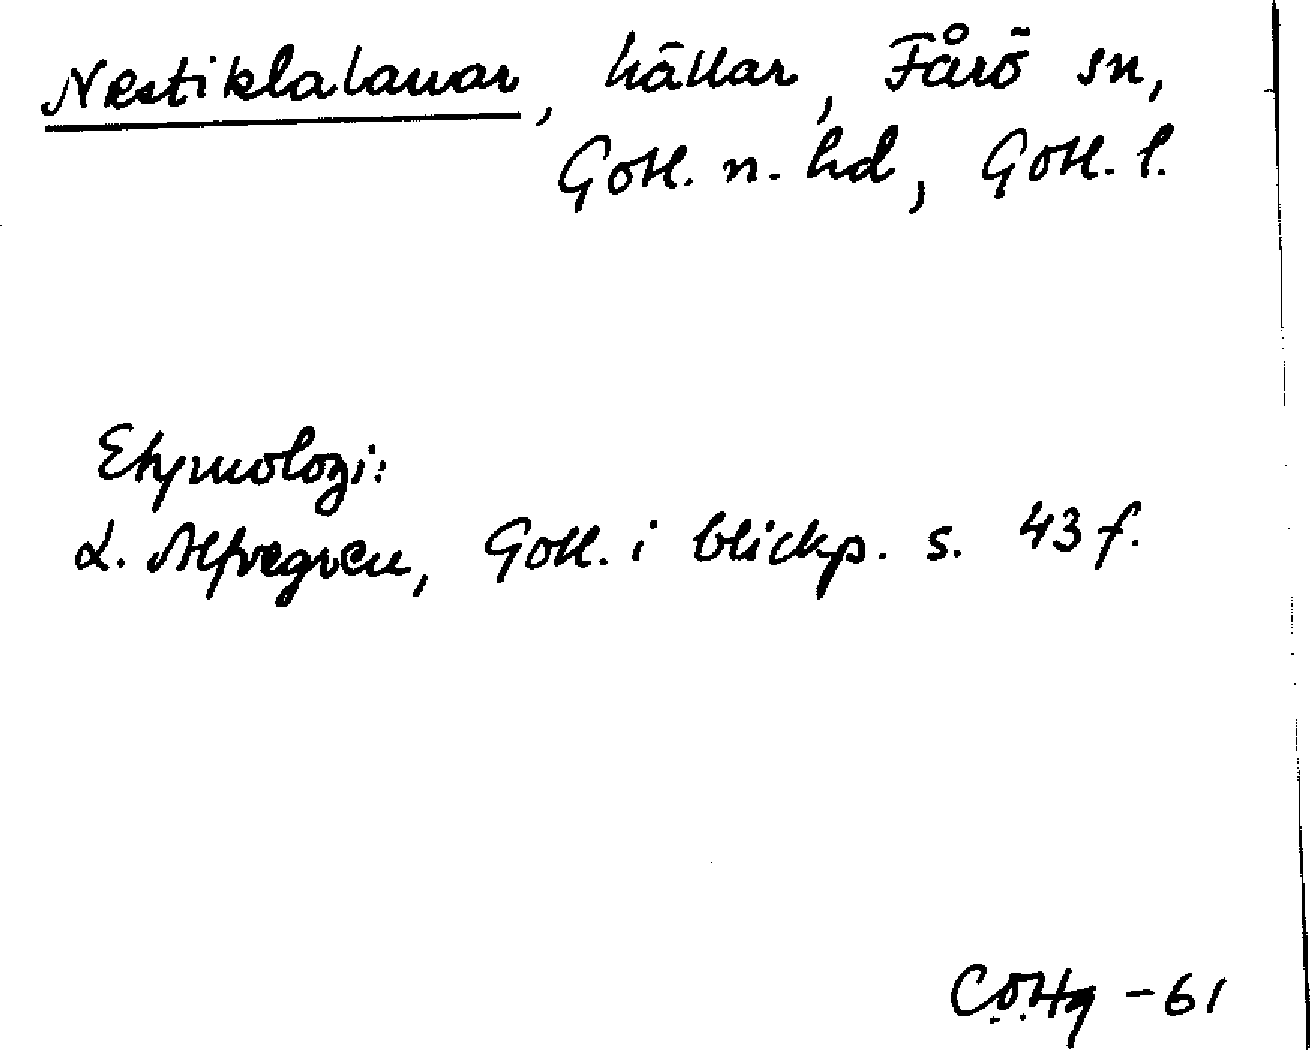 Nestiklalauar, hällar, Fårö sn,
Gotl. n. hd, Gotl. l.
Etymologi:
L. Alfvegren, Gotl. i blickp. s. 43 f.
C.O.Hg -61